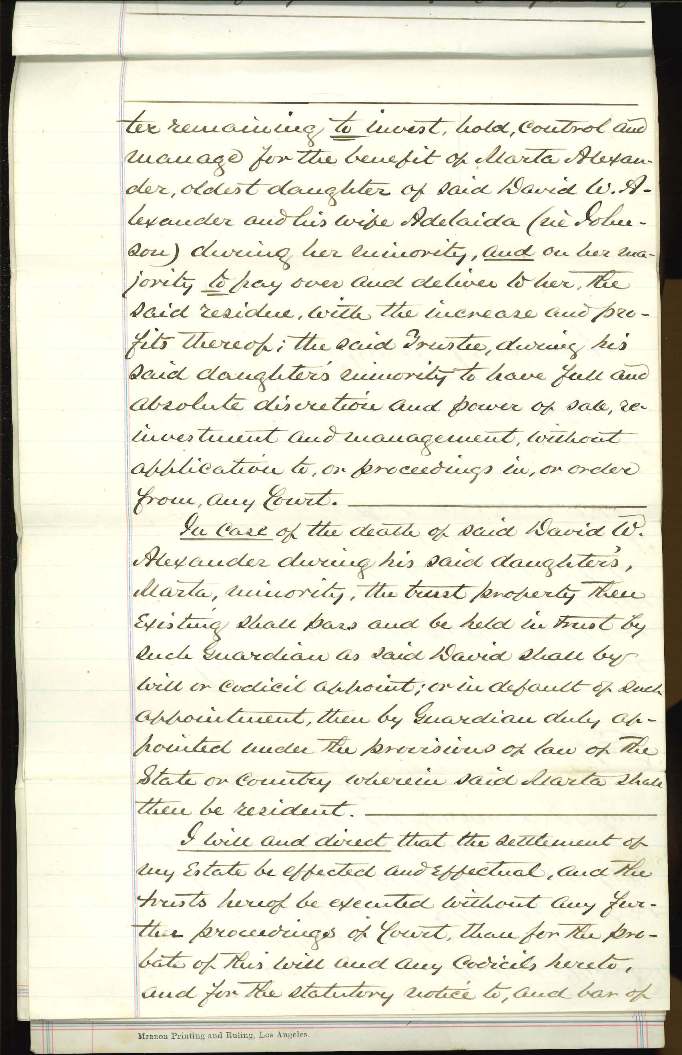 ter remaining to invest, hold, control and
manage for the benefit of Marta Alexan-
der, oldest daughter of said David W. A-
lexander and his wife Adelaida (née John-
son) during her minority, and on her ma-
jority to pay over and deliver to her, the
said residue, with the increase and pro-
fits thereof; the said Trustee, during his
said daughter's minority to have full and
absolute discretion and power of sale, re-
investment and management, without
application to, or proceedings in, or order
from, any Court.
In case of the death of said David W.
Alexander during his said daughter's,
Marta, minority, the trust property then
Existing shall pass and be held in trust by
such Guardian as said David shall by
will or codicil appoint; or in default of such
appointment, then by Guardian duly ap-
pointed under the provisions of law of the
State or Country wherein said Marta shall
then be resident.
I will and direct that the settlement of
my Estate be effected and effectual, and the
trusts hereof be executed without any fur-
ther proceedings of Court, than for the pro-
bate of this will and any Codicils hereto,
and for the statutory notice to, and bar of
Merzon Printing and Ruling, Los Angeles.